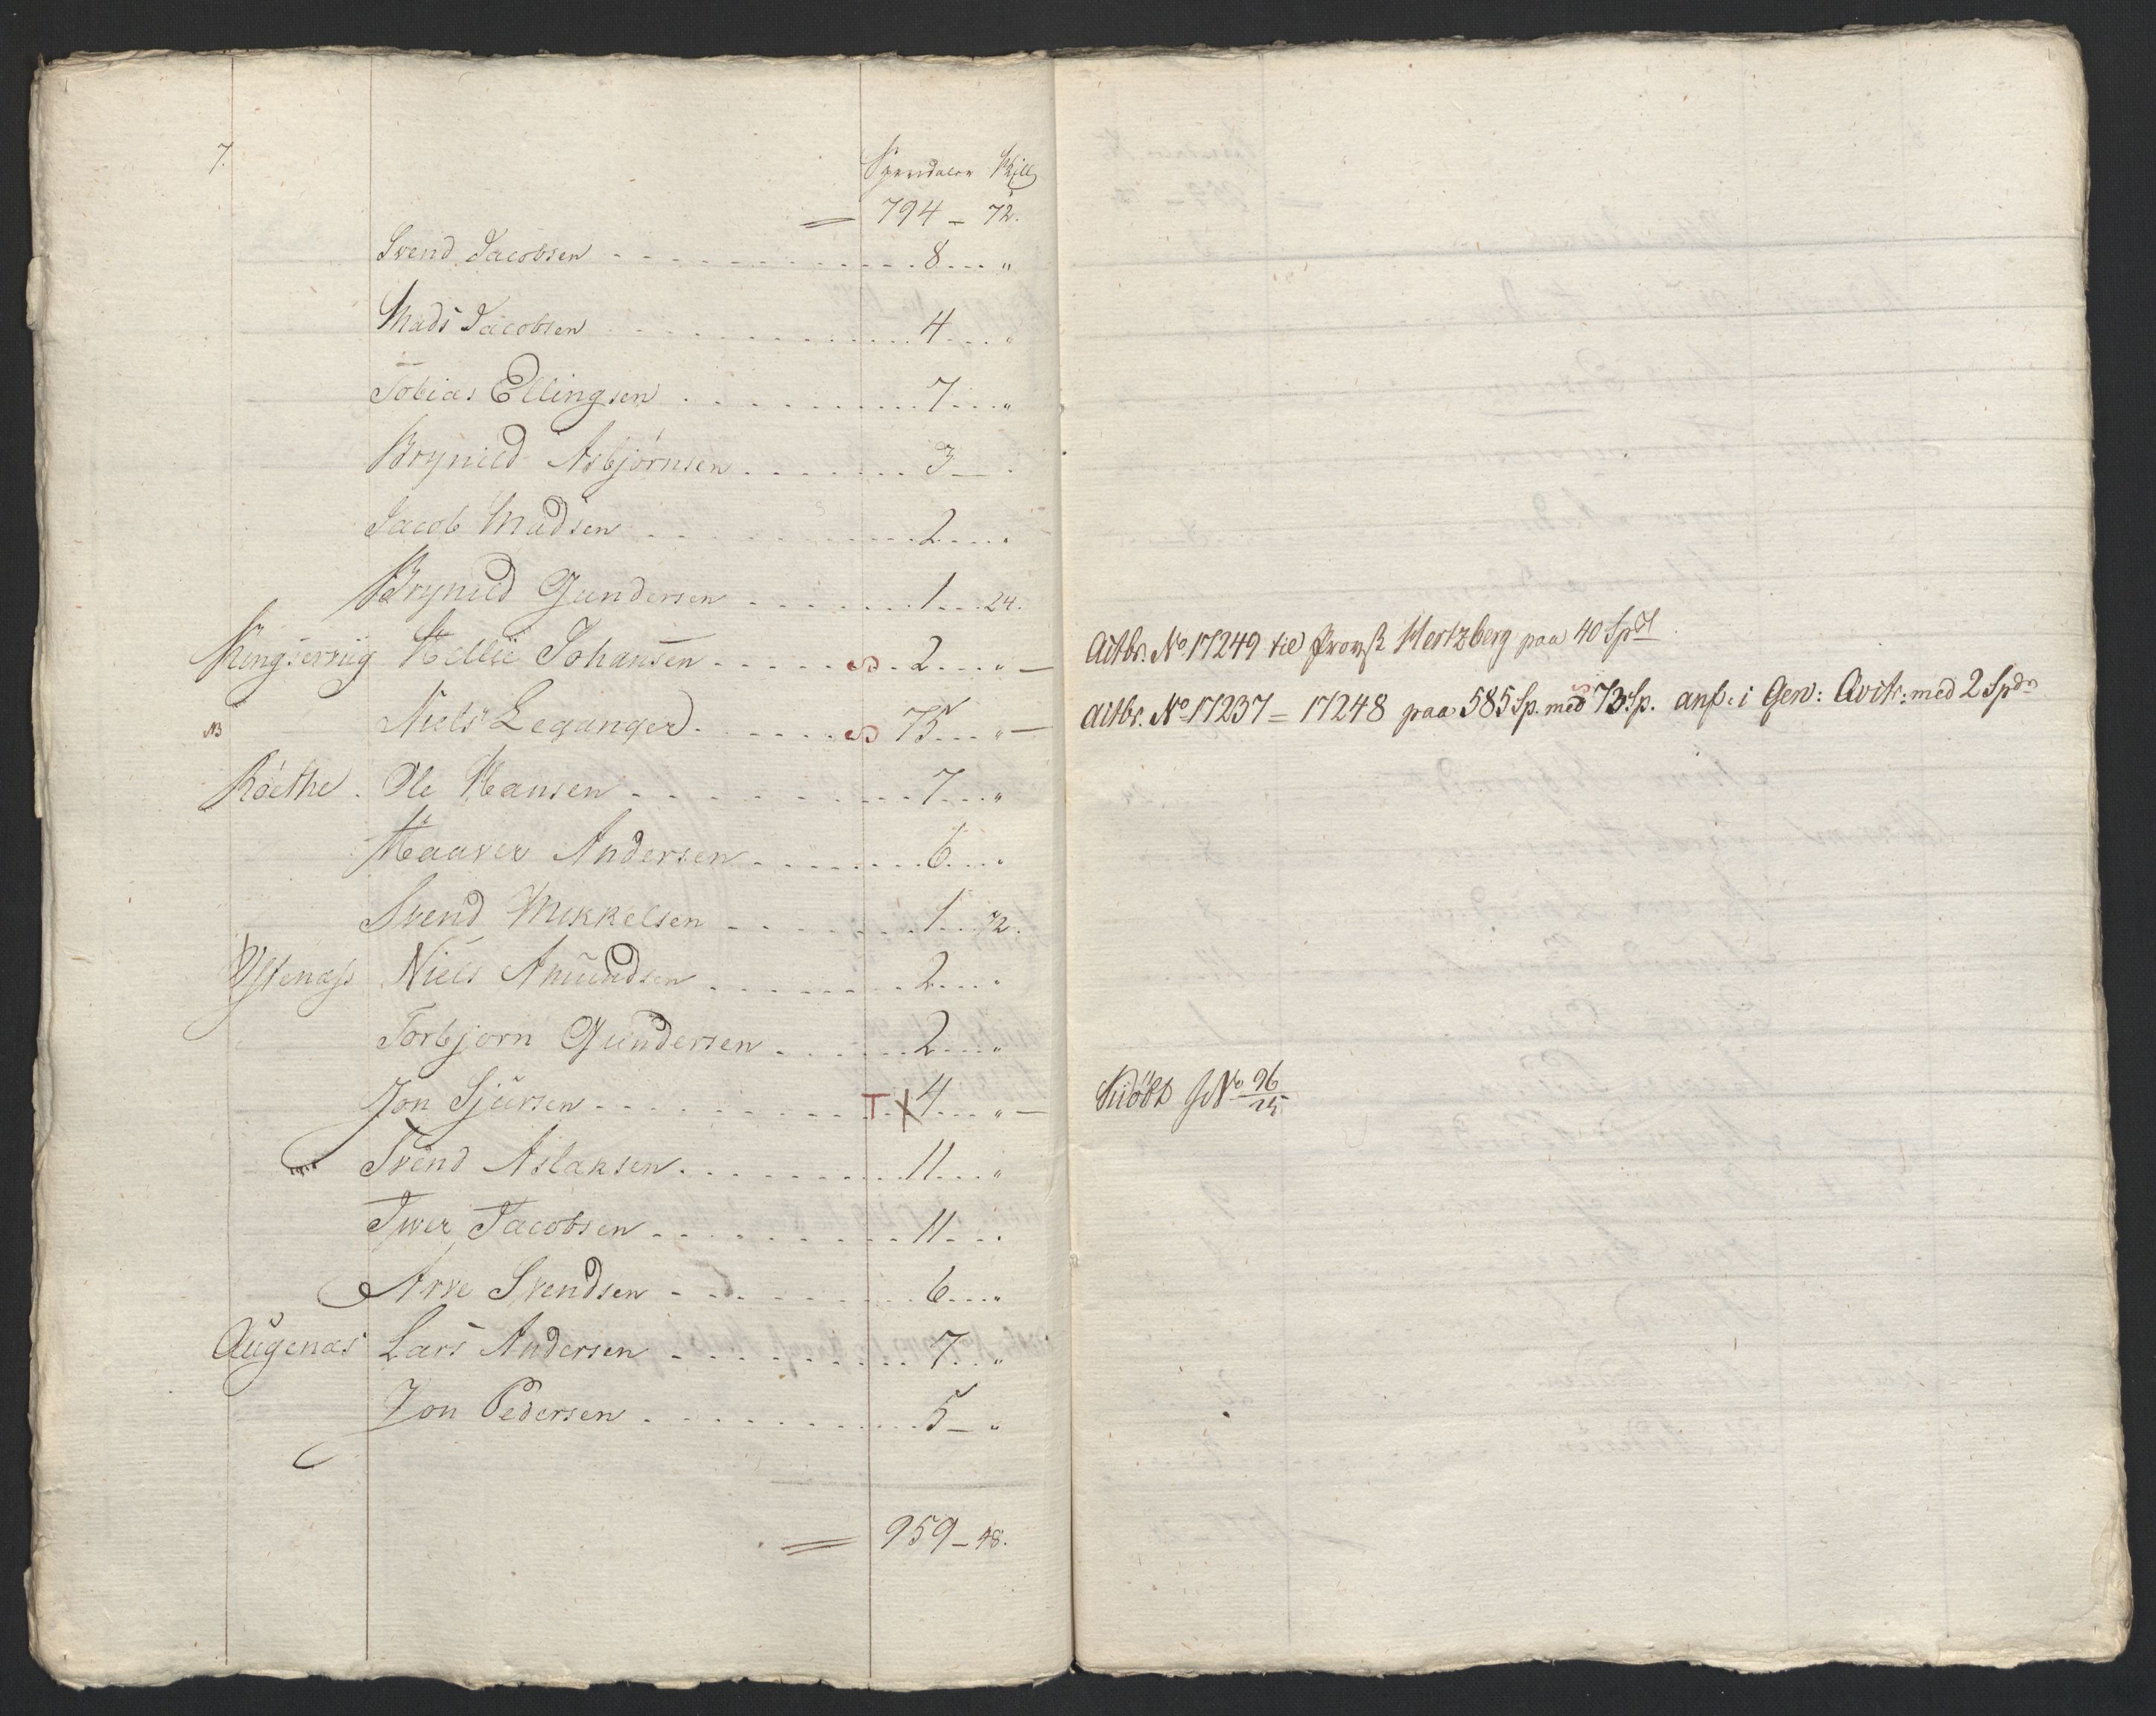 7.
Speciedaler Skill
= 794 – 72.
Svend Jacobsen 8 "
Mads Jacobsen 4 "
Tobias Ellingsen 7 "
Brynild Asbjörnsen 3 –
Jacob Madsen 2 "
Brynild Gundersen 1 24.
Ringserviig Hellie Johansen 2 " – Actbr. No 17249 til Provst Hertzberg paa 40 Spd
NB Niels Leganger 75 " – Actbr. No 17237 = 17248 paa 585 Sp. med 73 Sp. anf. i Gen: Qvitr: med 2 Spdr
Röethe. Ole Hansen 7 "
Haaver Andersen 6 "
Svend Mikkelsen 1 72.
Ystenæss Niels Amundsen 2 "
Torbjorn Gundersen 2 "
Jon Sjursen T X 4 " – No 96/25
Svend Aslaksen 11 "
Iver Jacobsen 11 "
Arve Svendsen 6 "
Augenæs Lars Andersen 7 "
Jon Pedersen 5 – "
= 959 – 48.